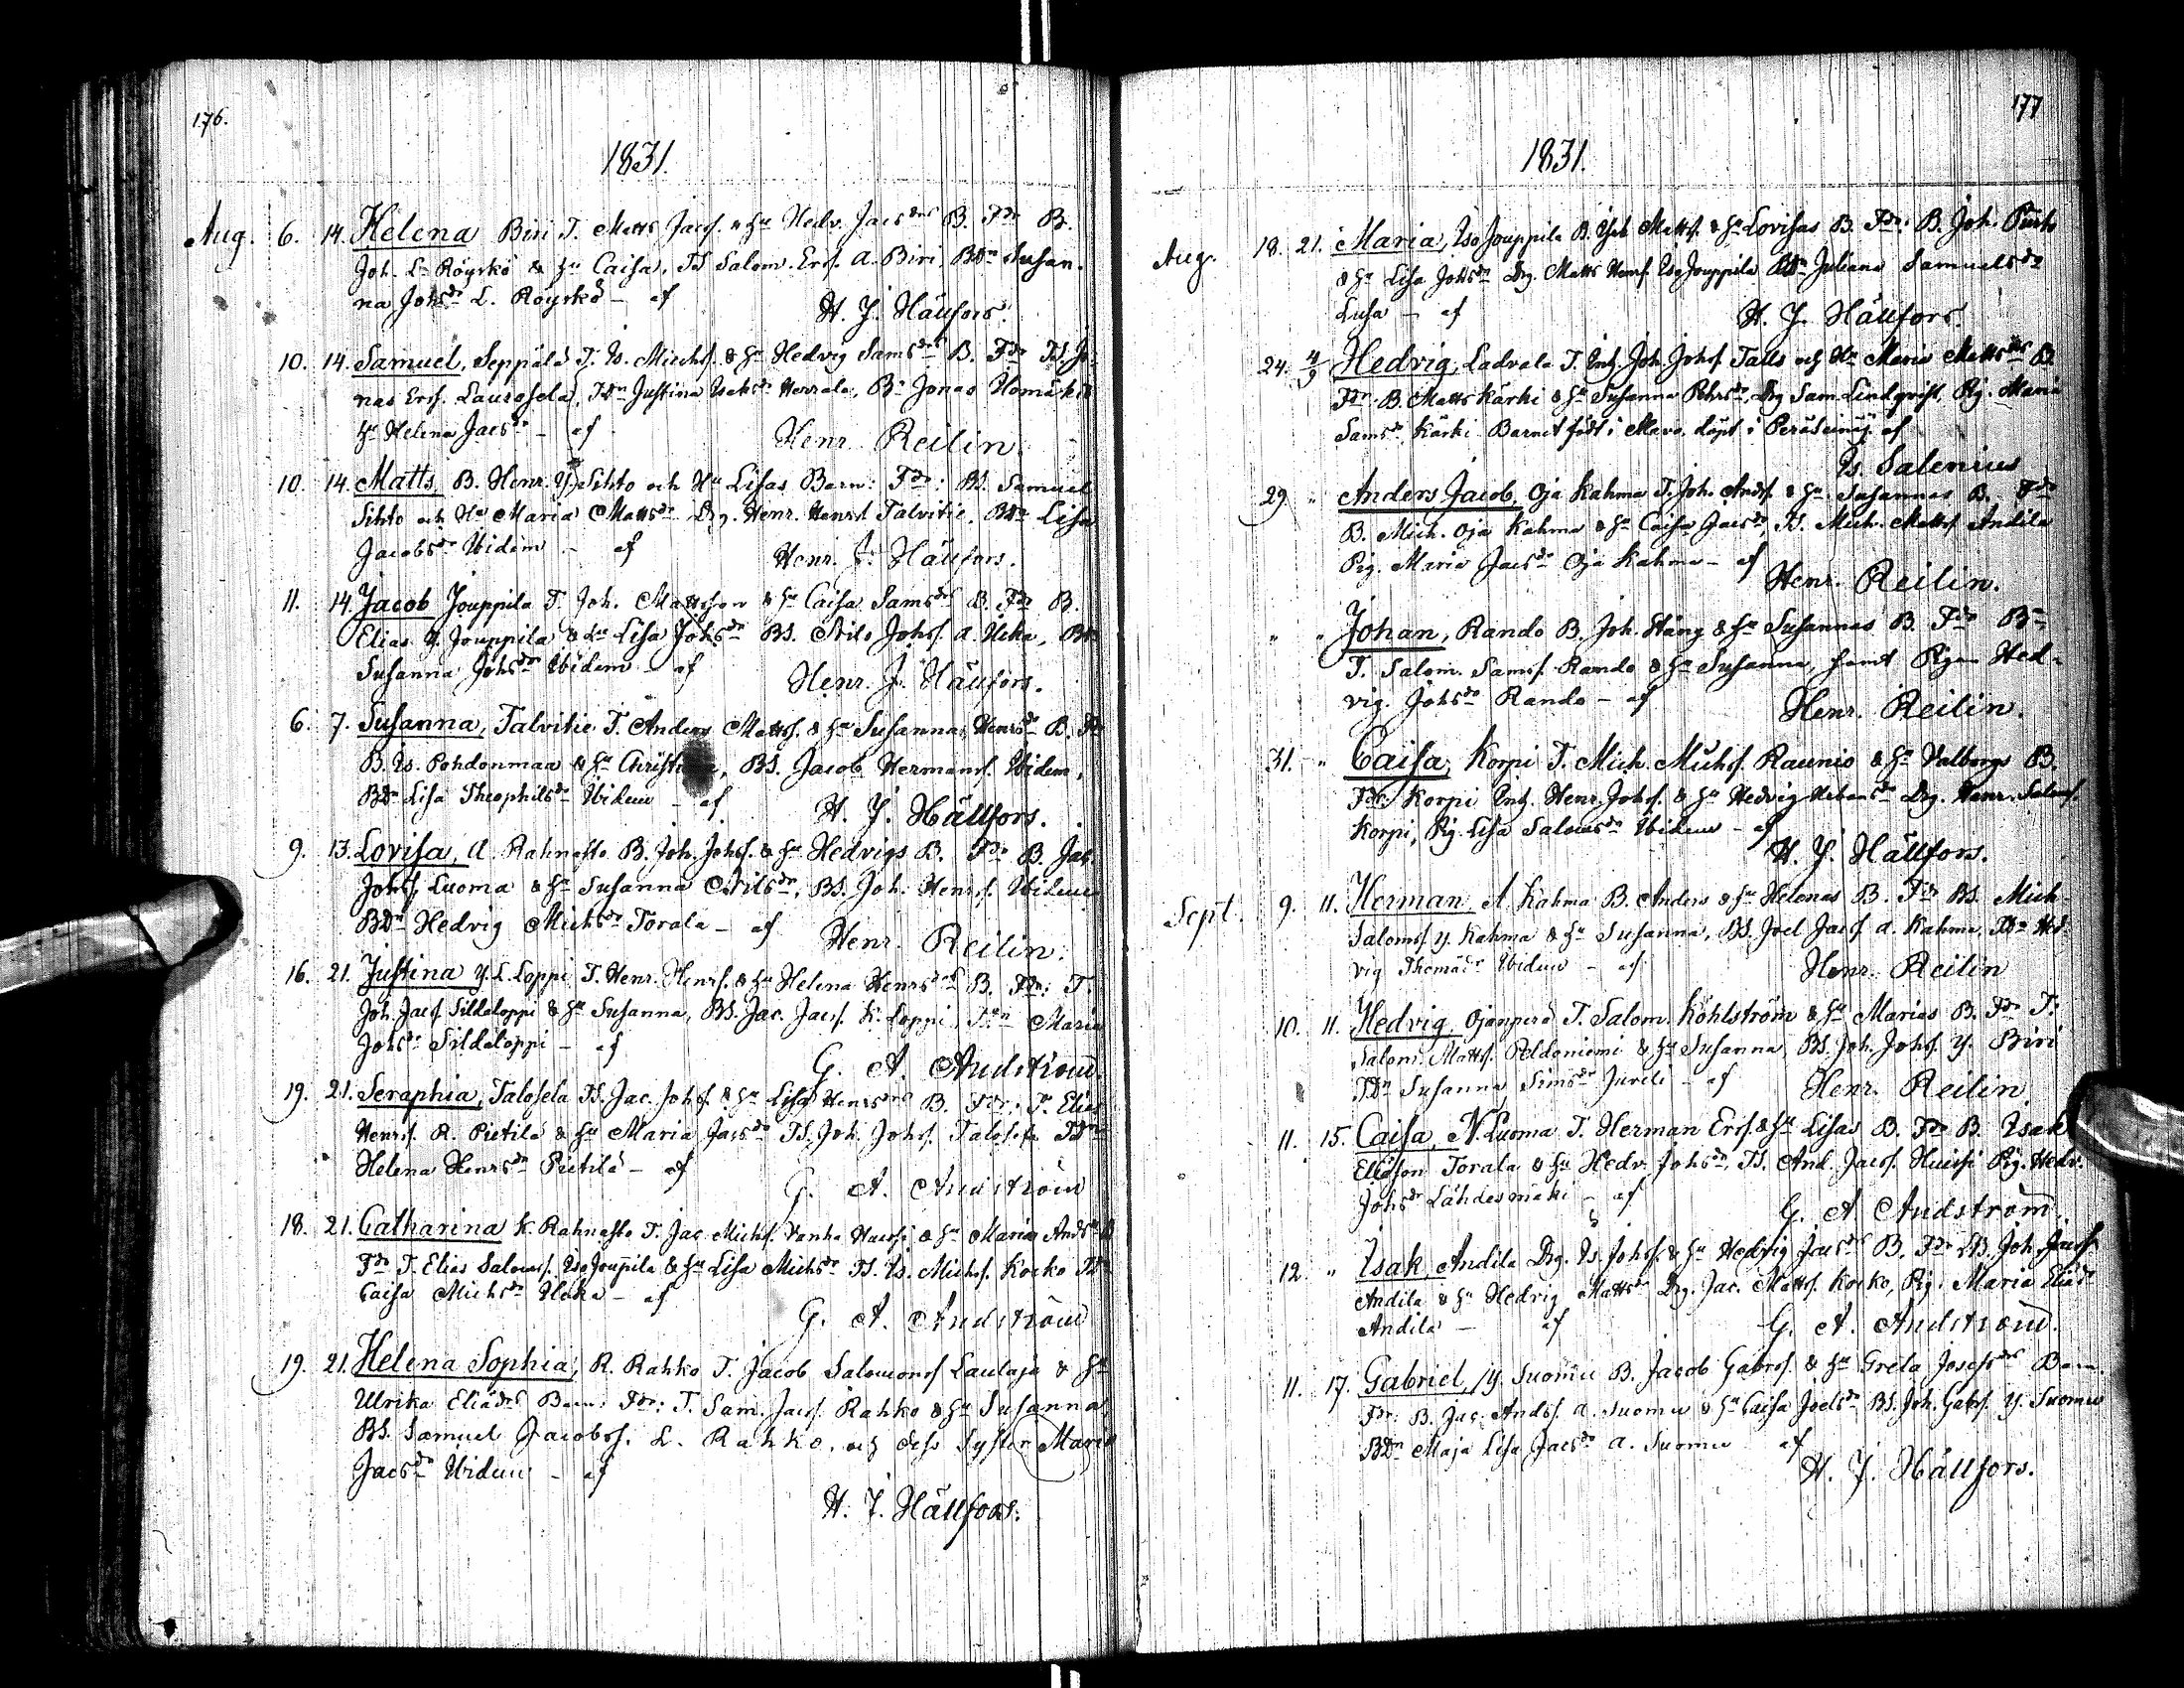 176.
1831.
Aug. 6. 14. Helena Biri T. Matts Jacs. & Hu Hedv. Jacsdrs B. Fdr B.
Joh. L. Röyskö & Hu Caisa, TS Salom. Ers. A. Biri, BDr Susan-
na Johsdr L. Röyskö – af
H. J. Hällfors.
10. 14. Samuel, Seppälä T. Is. Michs. & Hu Hedvig Samsdrs B. Fdr TS. Jo-
nas Ers. Laurosela, TDr Justina Isaksdr Herrala, Bn Jonas
Hu Helena Jacsdr – af
Henr. Reilin.
10. 14. Matts, B. Henr. Y. Sihto och Hu Lisas Barn: Fdr: BS. Samuel
Sihto och Hu Maria Mattsdr Drg. Henr. Henrs. Talvitie, BDr Lisa
Jacobsdr Ibidem – af
Henr. J. Hällfors.
11. 14. Jacob Jouppila T. Joh. Mattsson & Hu Caisa Samsdrs B. Fdr B.
Elias Y. Jouppila & Hu Lisa Johsdr BS. Nils Johs. A. Ucka, BDr
Susanna Johsdr Ibidem – af
Henr. J. Hällfors.
6. 7. Susanna, Talvitie T. Anders Matts. & Hu Susannas Henrsdr B. Fdr
B. Is. Pohdonmaa & Hu Christina, BS. Jacob Hermans. Ibidem,
BDr Lisa Theophilsdr Ibidem – af
H. J. Hällfors.
9. 13. Lovisa, A. Rahnasto B. Joh. Johs. & Hu Hedvigs B. Fdr B. Jac.
Johs. Luoma & Hu Susanna Nilsdr, BS. Joh. Henrs. Ibidem
BDr Hedvig Michsdr Torala – af
Henr. Reilin.
16. 21. Justina Y. L. Loppi T. Henr. Henrs. & Hu Helena Henrsdrs B. Fdr: T.
Joh. Jacs. Sildaloppi & Hu Susanna, BS. Jac. Jacs. K. Loppi, TDr Maria
Johsdr Sildaloppi – af
G. A. Andström.
19. 21. Seraphia, Talosela TS. Jac. Johs. & Hu Lisa Henrsdrs B. Fdr: T. Elias
Henrs. R. Pietilä & Hu Maria Jacsdr TS. Joh. Johs. Talosela TDr
Helena Henrsdr Pietilä – af
G. A. Andström
18. 21. Catharina K. Rahnasto T. Jac. Michs. Vanha & Hu Marias Andsdr B.
Fdr T. Elias Saloms. Iso Jouppila & Hu Lisa Michsdr TS. Is. Michs. Kocko TDr
Caisa Michsdr – af
G. A. Andström
19. 21. Helena Sophia, R. Rahko T. Jacob Salomons. Laulaja & Hu
Ulrika Eliädrs Barn: Fdr: T. Sam. Jacs. Rahko & Hu Susanna,
BS. Samuel Jacobs. L. Rahko, och dess Syster Maria
Jacsdr Ibidem – af
H. J. Hällfors.
177
1831.
Aug. 18. 21. Maria, Iso Jouppila B. Isak Matts. & Hu Lovisas B. Fdr: B. Joh.
& Hu Lisa Johsdr Drg. Matts Henrs. Iso Jouppila BDr Juliana Samuelsdr
– af
H. J. Hällfors.
24. 4/9 Hedvig, Ladvala T. Inh. Joh. Johs. Talls och Hu Maria Mattsdrs B.
Fdr B. Matts Kärki & Hu Susanna Pehrsdr, Drg Sam. Lindqvist, Pig. Maria
Samsdr Kärki Barnet födt i Mavo. döpt i Peräseinäj. af
Is. Salenius
29. " Anders Jacob, Oja Kahma T. Joh. Ands. & Hu Susannas B. Fdr
B. Mich. Oja Kahma & Hu Caisa Jacsdr, TS. Mich. Matts. Andila
Pig. Maria Jacsdr Oja Kahma – af
Henr. Reilin.
" " Johan, Rando B. Joh. Häng & Hu Susannas B. Fdr Bn,
T. Salom. Sams. Rando & Hu Susanna, samt Pigan Hed-
vig Johsdr Rando – af
Henr. Reilin.
31. " Caisa, Korpi T. Mich. Michs. Raunio & Hu Valborgs B.
Fdr: Korpi Inh. Henr. Johs. & Hu Hedvig Drg. Henr. Saloms.
Korpi, Pig. Lisa Salomsdr Ibidem – af
H. J. Hällfors.
Sept. 9. 11. Herman, A. Kahma B. Anders & Hu Helenas B. Fdr BS. Mich.
Saloms. Y. Kahma & Hu Susanna, BS. Joel Jacs. A. Kahma, TDr Hed-
vig Thomädr Ibidem – af
Henr. Reilin
10. 11. Hedvig, Ojanperä T. Salom. Kohlström & Hu Marias B. Fdr T.
Salom. Matts. Peldoniemi & Hu Susanna, BS. Joh. Johs. Y. Biri
TDr Susanna Simsdr Jureli – af
Henr. Reilin.
11. 15. Caisa, N. Luoma T. Herman Ers. & Hu Lisas B. Fdr B. Isak
Eliäson Torala & Hu Hedv. Johsdr, TS. And. Jacs. Huissi Pig. Hedv.
Johsdr Lähdesmäki – af
G. A. Andström.
12. " Isak, Andila Drg. Is. Johs. & Hu Hedvig Jacsdrs B. Fdr B. Joh. Jacs.
Andila & Hu Hedvig Mattsdr Drg. Jac. Matts. Kocko, Pig. Maria Eliädr
Andila – af
G. A. Andström.
11. 17. Gabriel, Y. Suomu B. Jacob Gabrs. & Hu Greta Josephsdrs Barn
Fdr: B. Jac. Ands. A. Suomu & Hu Caisa Joelsdr BS. Joh. Gabrs. Y. Suomu
BDr Maja Lisa Jacsdr A. Suomu af
H. J. Hällfors.